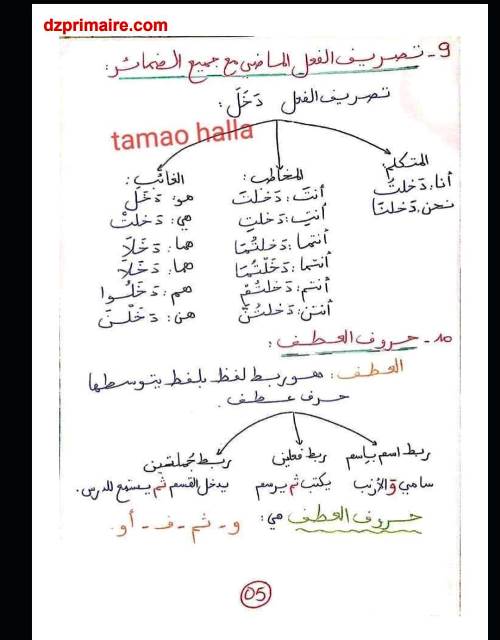 dzprimaire.com
9- تصريف الفعل الماضي مع جميع الضمائر:
تصريف الفعل دَخَلَ:
tamao halla
المتكلم:
أنا: دَخلتُ
نحن: دَخلنَا
المخاطب:
أنتَ: دَخلتَ
أنتِ: دَخلتِ
أنتما: دَخلتُمَا
أنتما: دَخَلْتُمَا
أنتم: دَخلتُمْ
أنتن: دَخلتُنَّ
الغائب:
هو: دَخَلَ
هي: دَخلتْ
هما: دَخَلَا
هما: دَخَلَا
هم: دَخَلُوا
هن: دَخَلْنَ
10- حروف العطف:
العطف: هو ربط لفظ بلفظ يتوسطها
حرف عطف.
ربط اسم بإسم
سامي و الأرنب
ربط فعلين
يكتب ثم يرسم
ربط جملتين
يدخل القسم ثم يستمع للدرس.
حروف العطف هي: و - ثم - ف - أو.
05